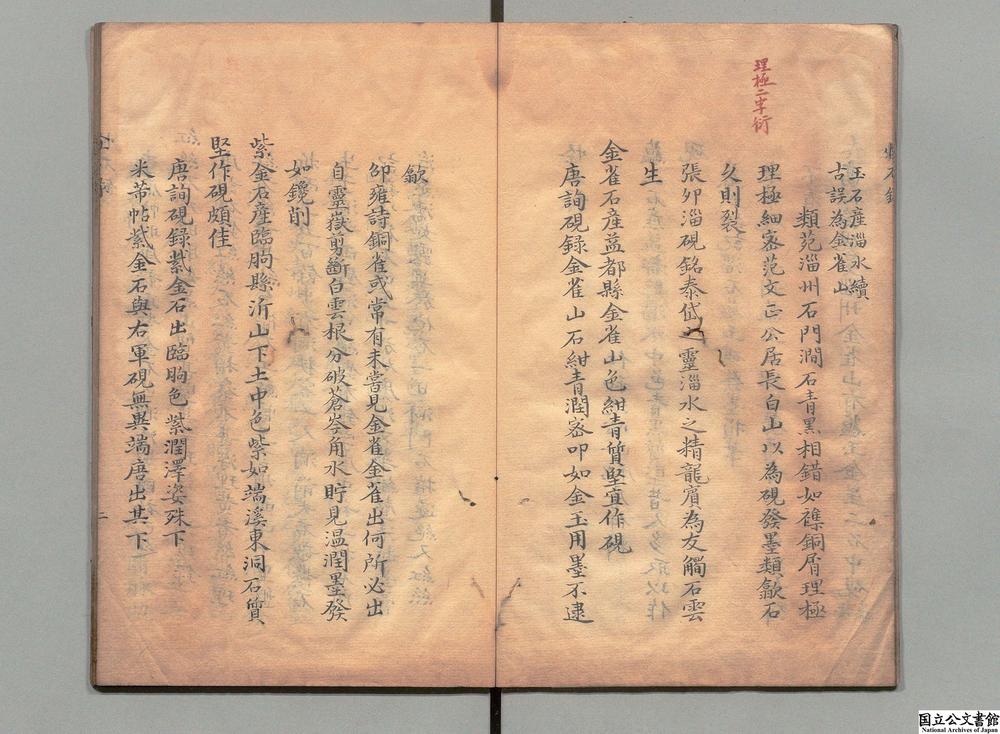 理極二字衍
玉石產淄水續
古誤為金雀山
類苑淄州石門澗石青黑相錯如襍銅屑理極
理極細宻范文正公居長白山以為硯發墨類歙石
久則裂
張卯淄硯銘泰岱之靈淄水之精龍賓為友觸石雲
生
金雀石產益都縣金雀山色紺青質堅宜作硯
唐詢硯録金雀山石紺青潤宻叩如金玉用墨不逮
歙
邵雍詩銅雀或常有未甞見金雀金雀出何所必出
自靈嶽剪斷白雲根分破蒼岑角水貯見温潤墨發
如鑱削
紫金石產臨朐縣沂山下土中色紫如端溪東洞石質
堅作硯頗佳
唐詢硯録紫金石出臨朐色紫潤澤姿殊下
米芾帖紫金石與右軍硯無異端唐出其下
二
国立公文書館
National Archives of Japan